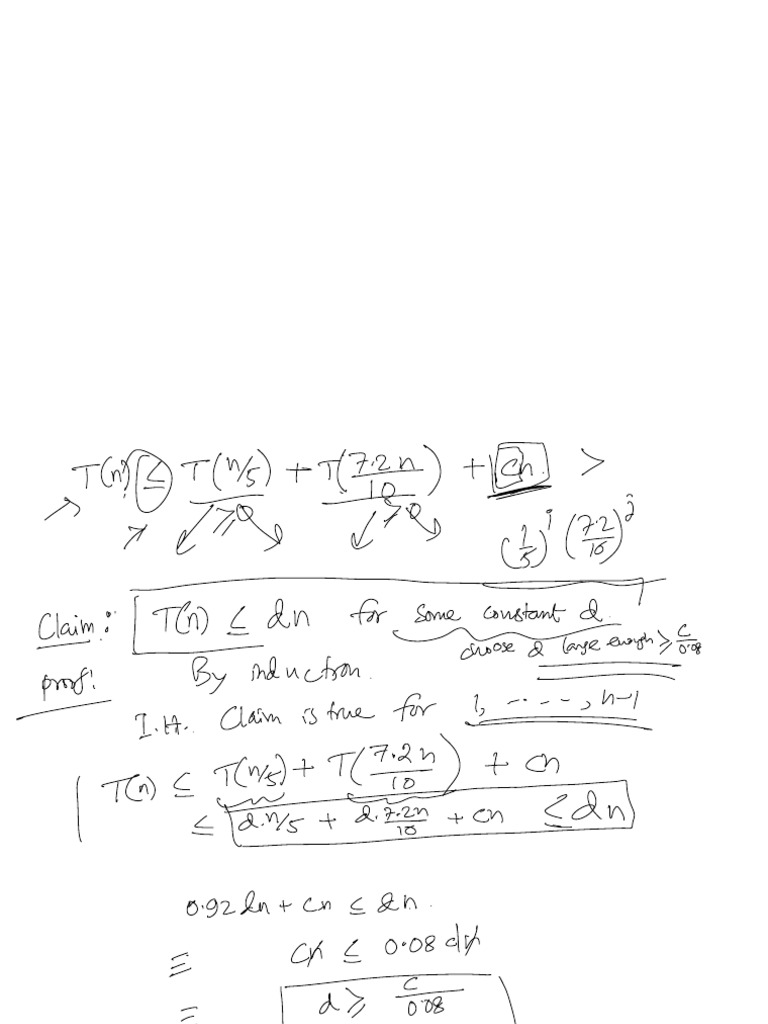 T(n) ≤ T(n/5) + T(7.2n/10) + cn >
≥0 ≥0 (1/5)^i (7.2/10)^j
Claim: T(n) ≤ dn for some constant d.
choose d large enough ≥ c/0.08
proof: By induction.
I.H. Claim is true for 1, -----, n-1
T(n) ≤ T(n/5) + T(7.2n/10) + cn
≤ d.n/5 + d.7.2n/10 + cn ≤ dn
0.92dn + cn ≤ dn.
≡ cn ≤ 0.08 dn
≡ d ≥ c/0.08